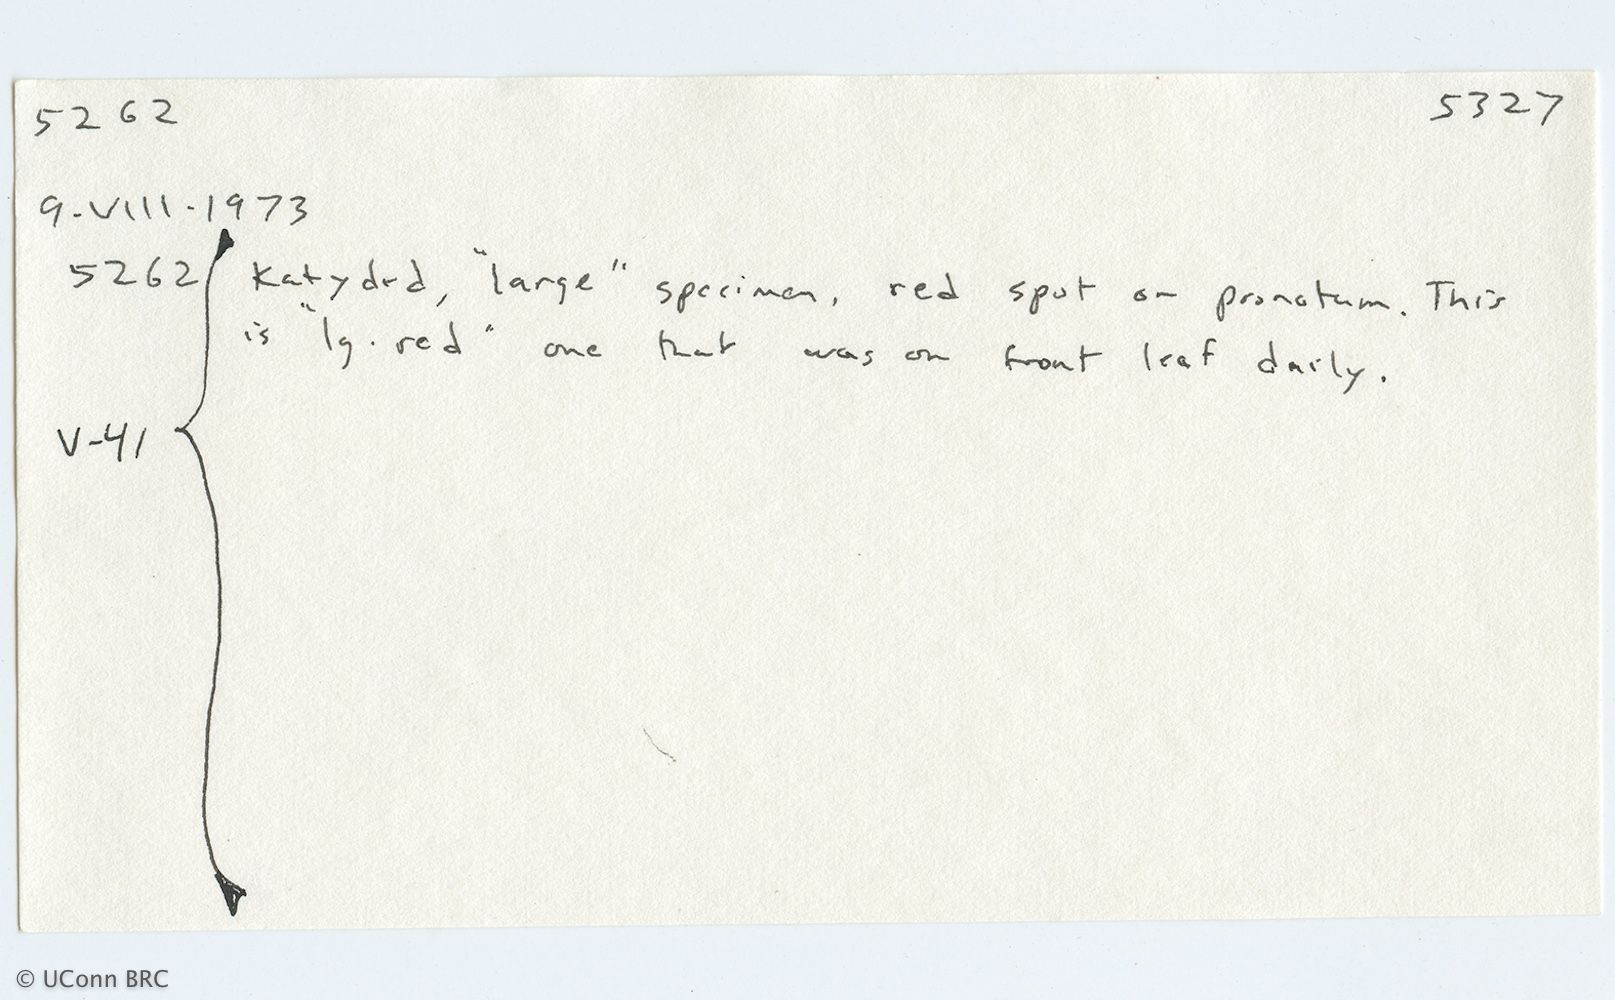 5262 5327
9-VIII-1973
5262 Katydid, "large" specimen, red spot on pronotum. This
is "lg. red" one that was on front leaf daily.
V-41
© UConn BRC